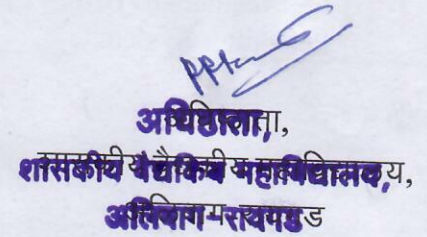 अधिष्ठाता,
शासकीय वैद्यकीय महाविद्यालय,
अलिबाग-रायगड